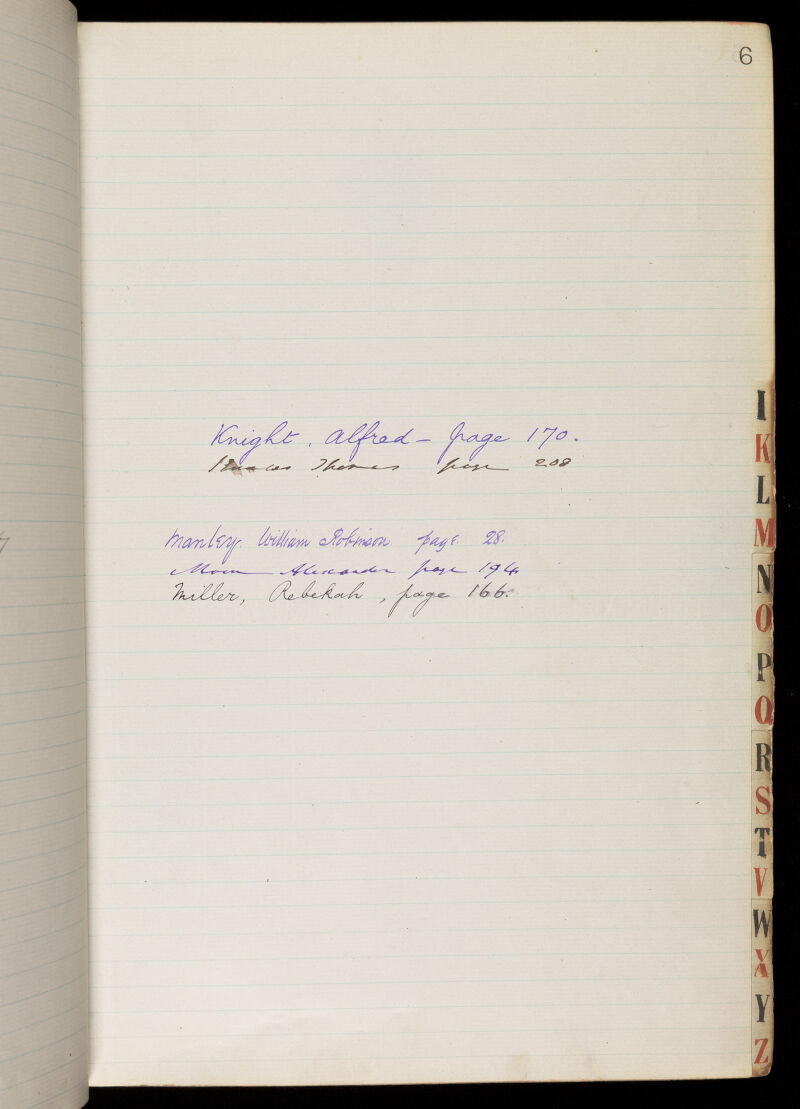 6
Knight, Alfred – page 170.
Thomas page 208
Manley. William Robinson page. 28.
Alexander page 194
Miller, Rebekah, page 166.
I
K
L
M
N
O
P
Q
R
S
T
V
W
X
Y
Z